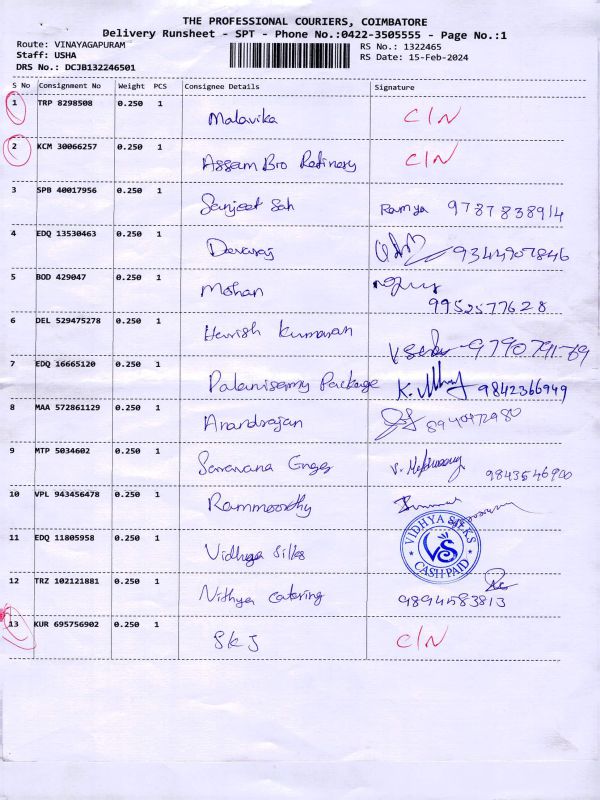 THE PROFESSIONAL COURIERS, COIMBATORE
Delivery Runsheet - SPT - Phone No.:0422-3505555 - Page No.:1
Route: VINAYAGAPURAM RS No.: 1322465
Staff: USHA RS Date: 15-Feb-2024
DRS No.: DCJB132246501
S No Consignment No Weight PCS Consignee Details Signature
1 TRP 8298508 0.250 1 Malavika C/N
2 KCM 30066257 0.250 1 Assam Bro Refinery C/N
3 SPB 40017956 0.250 1 Sanjeet Sah Ramya 9787838914
4 EDQ 13530463 0.250 1 Devaraj 9344907846
5 BOD 429047 0.250 1 Mohan 9952577628
6 DEL 529475278 0.250 1 Harish Kumaran
7 EDQ 16665120 0.250 1 Palanisamy Package 9842366949
8 MAA 572861129 0.250 1 Anandrajan
9 MTP 5034602 0.250 1 Saravana Engg 9843546900
10 VPL 943456478 0.250 1 Rammoorthy
11 EDQ 11805958 0.250 1 Vidhya Silks VIDHYA SILKS VS CASH PAID
12 TRZ 102121881 0.250 1 Nithya Catering 9894583813
13 KUR 695756902 0.250 1 SKJ C/N